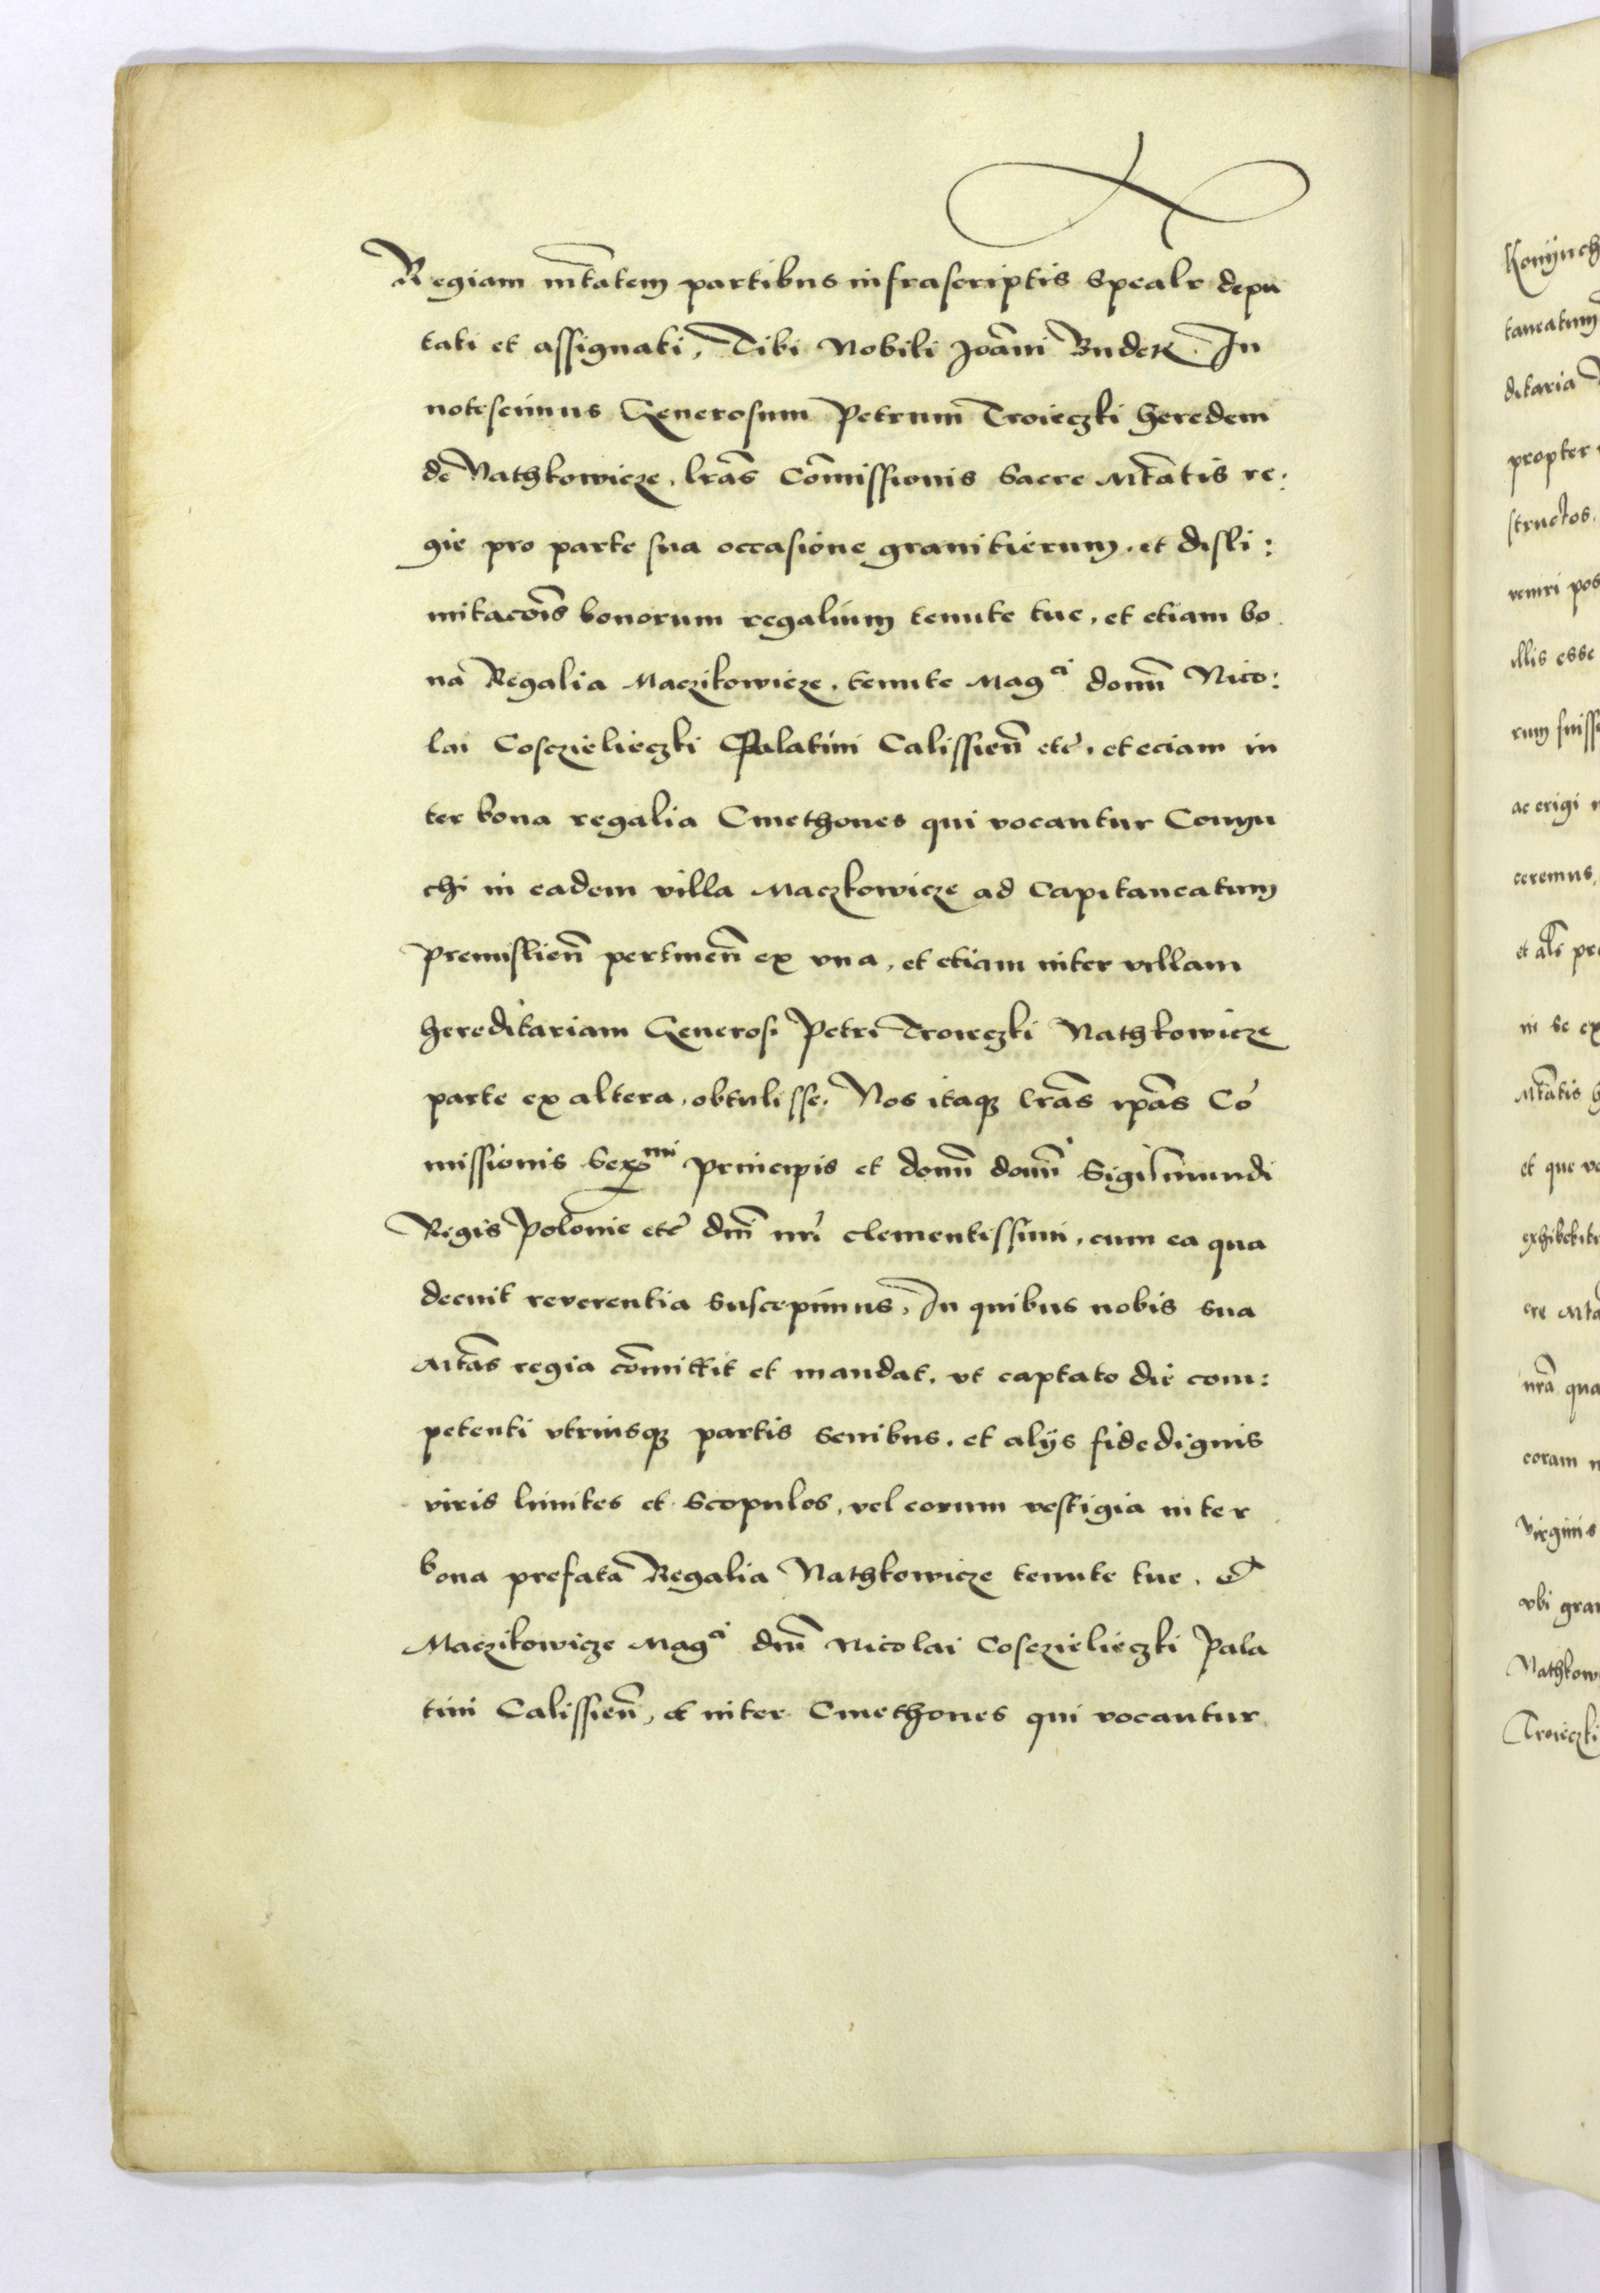 Regiam mtātem partibus infrascriptis Spealr depu
tati et assignati, Tibi Nobili Joāni Buder. In
notescimus Generosum Petrum Troieczki heredem
de Nathkowicze, lrās Cōmissionis Sacre Mtātis re:
gie pro parte sua occasione granitierum, et disli:
mitacōis bonorum regalium tenute tue, et etiam bo
na Regalia Maczikowicze, tenute Magci domī Nico:
lai Cosczielieczki Palatini Calissieñ etc̄, et eciam in
ter bona regalia Cmethones qui vocantur Conyu
chi in eadem villa Maczkowicze ad Capitaneatum
Premislieñ pertineñ ex vna, et etiam inter villam
hereditariam Generosi Petri Troieczki Nathkowicze
parte ex altera, obtulisse. Nos itaq; lrās ipās Cō
missionis Principis et domī domī Sigismundi
Regis Polonie etc̄ dnī nrī clementissimi, cum ea qua
decuit reverentia suscepimus, In quibus nobis sua
Mtās regia cōmittit et mandat, vt captato die com:
petenti vtriusq; partis senibus, et alijs fidedignis
viris limites et Scopulos, vel eorum vestigia inter
bona prefata Regalia Nathkowicze tenute tue, et
Maczikowicze Magci dnī Nicolai Cosczielieczki Pala
tini Calissieñ, et inter Cmethones qui vocantur
Konÿuch
taneatum
ditaria
propter
structos,
veniri pos
illis esse
rum fuiss
ac erigi
ceremus,
et alī pr
in se ex
Mtātis
et que vo
exhibebit
ere Mta
nrā qua
coram
Virginis
vbi gra
Nathkow
Troieczki